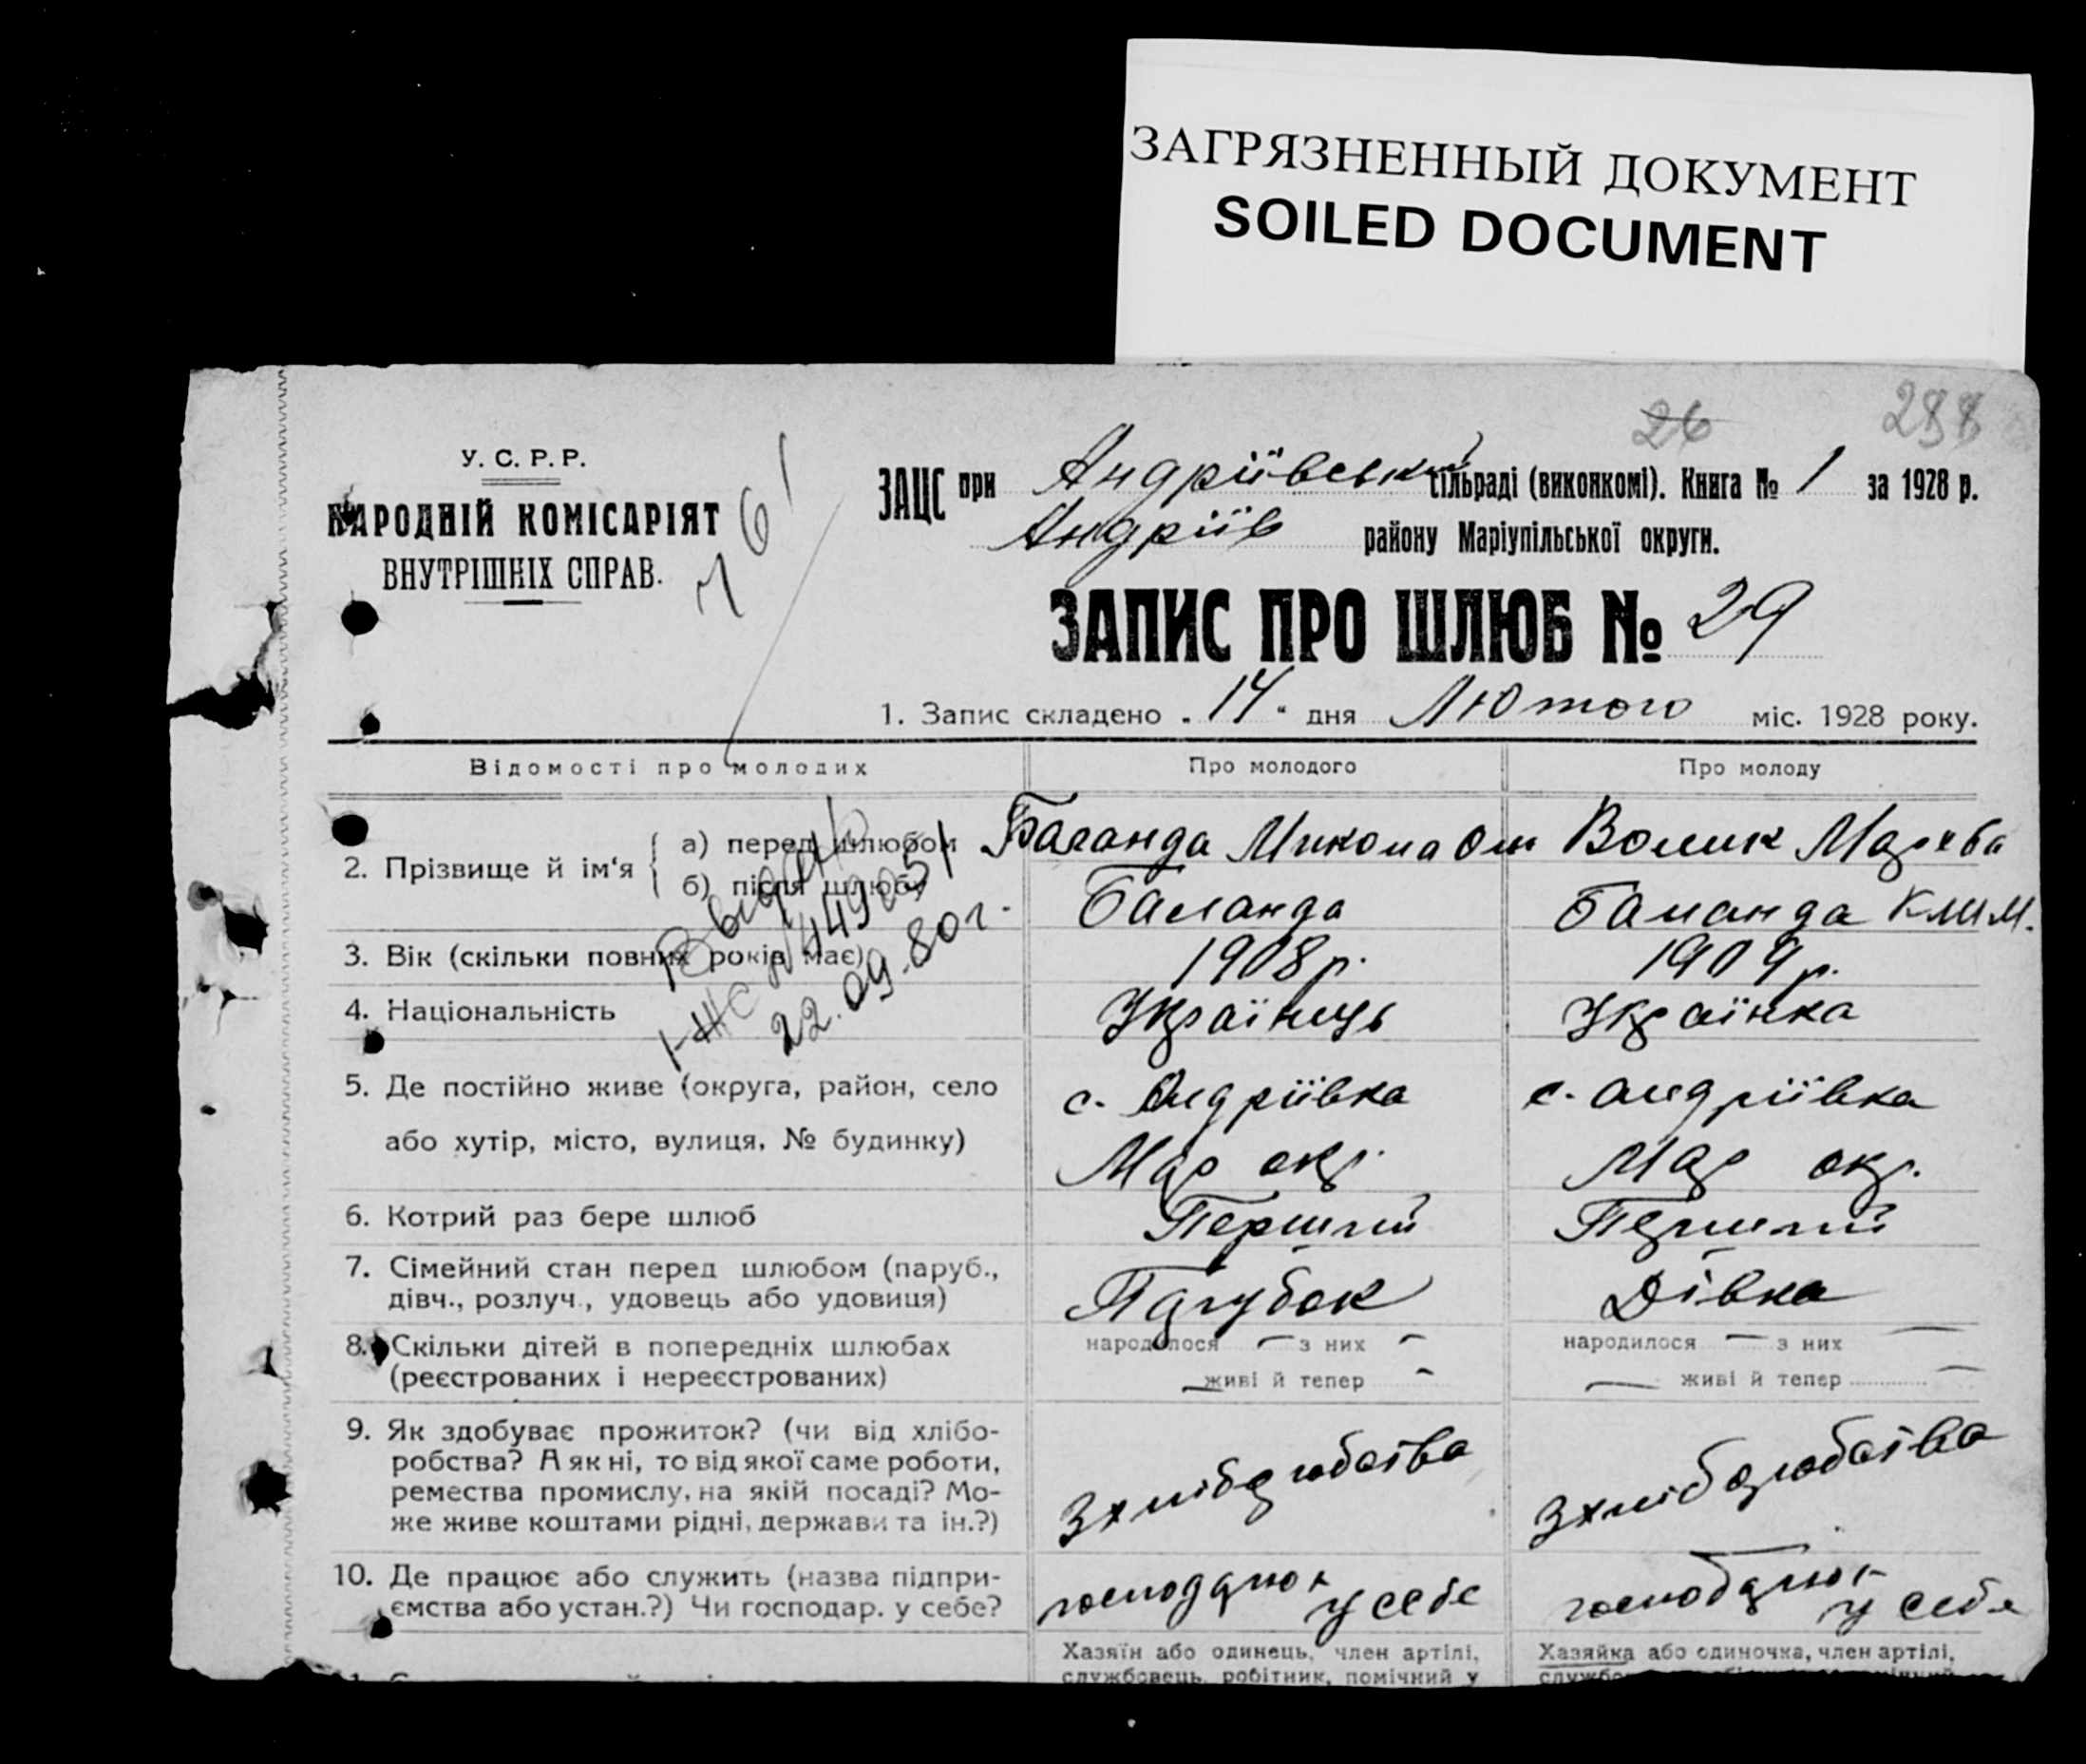 ЗАГРЯЗНЕННЫЙ ДОКУМЕНТ
SOILED DOCUMENT
26 288
У. С. Р. Р.
НАРОДНІЙ КОМІСАРІЯТ
ВНУТРІШНІХ СПРАВ.
761
ЗАЦС при Андріївський сільраді (виконкомі). Книга № 1 за 1928 р.
Андріїв району Маріупільської округи.
ЗАПИС ПРО ШЛЮБ № 29
1. Запис складено „14“ дня Лютого міс. 1928 року.
Відомості про молодих Про молодого Про молоду
2. Прізвище й ім‘я { а) перед шлюбом Баланда Микола Ол Волик Марева
б) після шлюбу Баланда Баланда Клим.
Выдан
I-ЖС № 449051
22.09.80г.
3. Вік (скільки повних років має) 1908р. 1909р.
4. Національність Українець Українка
5. Де постійно живе (округа, район, село с. Андріївка с. Андріївка
або хутір, місто, вулиця, № будинку) Мар окр. Мар окр.
6. Котрий раз бере шлюб Перший Перший
7. Сімейний стан перед шлюбом (паруб., Парубок Дівка
дівч., розлуч., удовець або удовиця)
8. Скільки дітей в попередніх шлюбах народилося — з них — народилося — з них —
(реєстрованих і нереєстрованих) — живі й тепер — — живі й тепер —
9. Як здобуває прожиток? (чи від хлібо-
робства? А як ні, то від якої саме роботи,
ремества промислу, на якій посаді? Мо- З хліборобства З хліборобства
же живе коштами рідні, держави та ін.?)
10. Де працює або служить (назва підпри- господарює господарює
ємства або устан.?) Чи господар. у себе? у себе у себе
Хазяїн або одинець, член артілі, Хазяйка або одиночка, член артілі,
службовець, робітник, помічний у